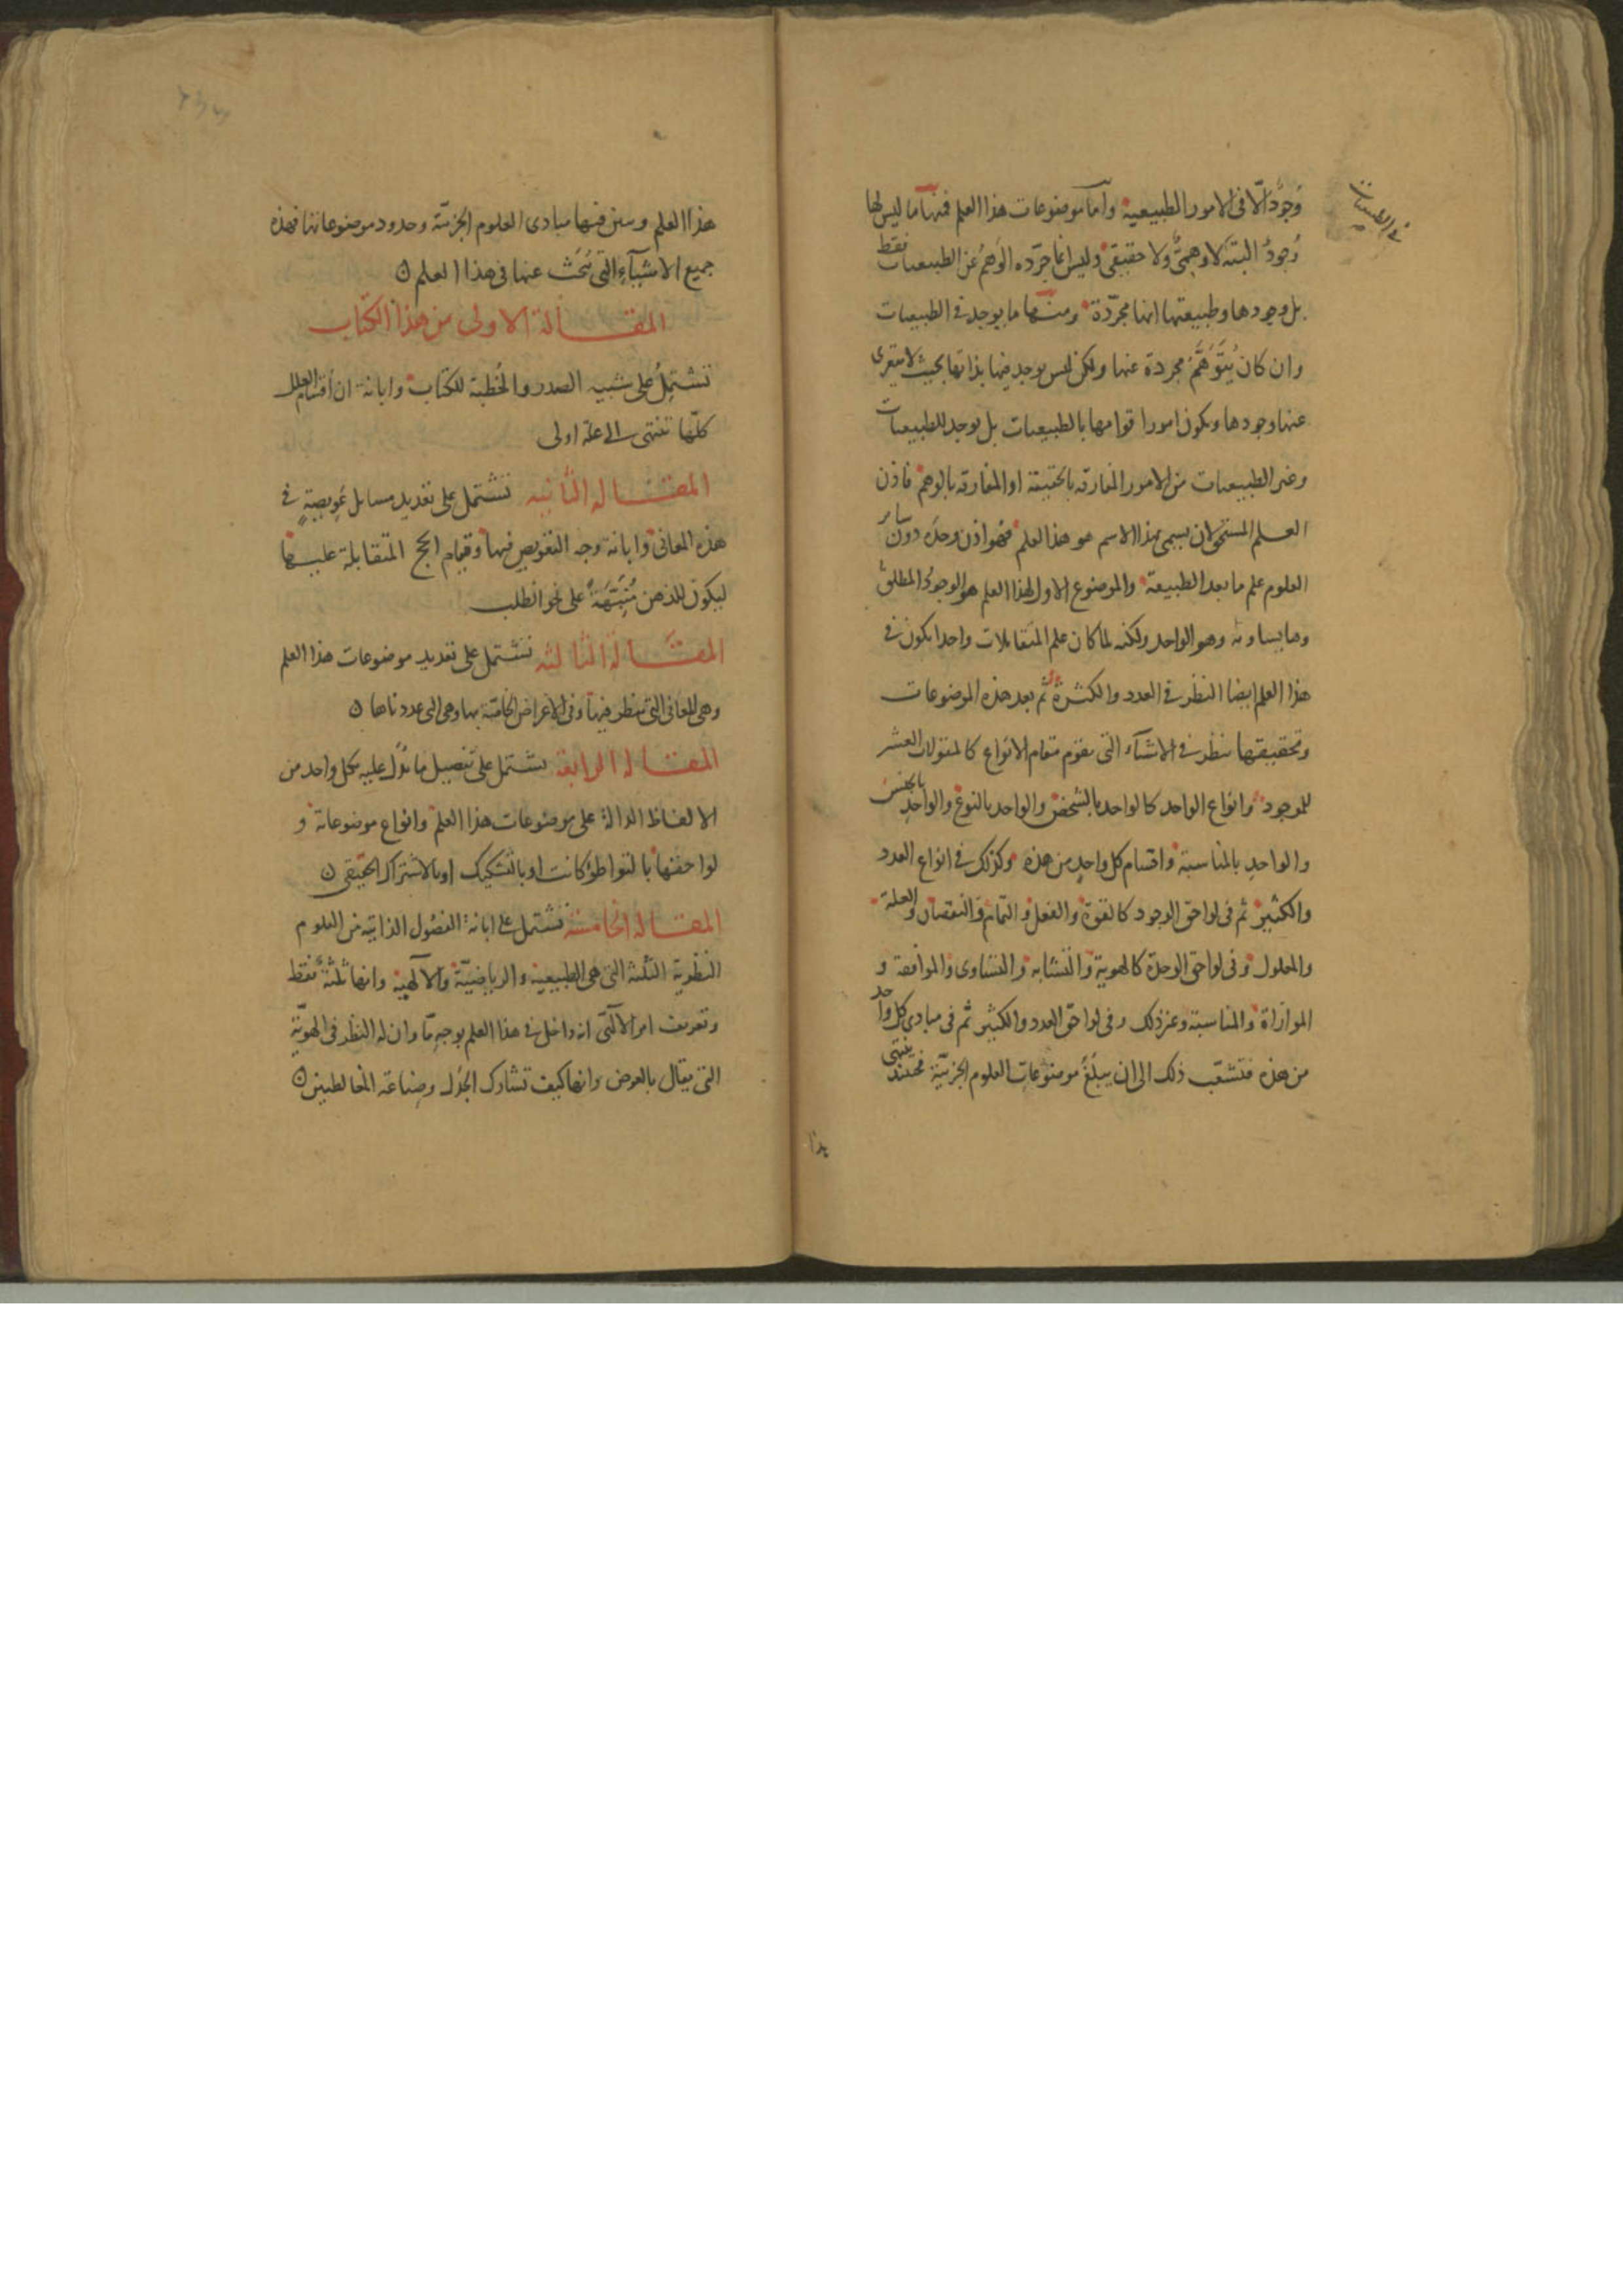 وجودٌ الّا فى الامور الطبيعية واما موضوعات هذا العلم فمنها ما ليس لها
وجودٌ البتة لا وهمىّ ولا حقيقى وليس انما جرّده الوهمُ عن الطبيعيات فقط
بل وجودها وطبيعتها انها مجرّدة ومنها ما يوجد فى الطبيعيات
وان كان يُتَوَهَّمُ مجردة عنها ولكن ليس يوجد فيها بذاتها بحيث لا يتعرى
عنها وجودها ويكون امورا قوامها بالطبيعيات بل يوجد للطبيعيات
وغير الطبيعيات من الامور المفارقه بالحقيقة او المفارقه بالوهم فاذن
العلم المستحق لان يسمى بهذا الاسم هو هذا العلم فهو اذن وحده دون سائر
العلوم علم ما بعد الطبيعة والموضوع الاول لهذا العلم هو الوجودُ المطلق
وما يساويه وهو الواحد ولكنه لما كان علم المتقابلات واحدا يكون فى
هذا العلم ايضا النظر فى العدد والكثرة ثم بعد هذه الموضوعات
وتحقيقها ينظر فى الاشيآء التى يقوم مقام الانواع كالمقولات العشر
للموجود وانواع الواحد كالواحد بالشخص والواحد بالنوع والواحد بالجنس
والواحدِ بالمناسبة واقسام كل واحدٍ من هذه وكذلك فى انواع العدد
والكثير ثم فى لواحق الوجود كالقوة والفعل والتمام والنقصان والعلة
والمعلول وفى لواحق الوحدة كالهوية والتشابه والتساوى والموافقة و
الموازاة والمناسبة وغير ذلك وفى لواحق العدد والكثير ثم فى مبادى كل واحد
من هذه فتشعّب ذلك الى ان يبلُغُ موضوعات العلوم الجزئيّة فحينئذ ينتهى
هذا
هذا العلم وسن فيها مبادى العلوم الجزئيّة وحدود موضوعاتها فهذه
جميع الاشيآءِ التى يُبحَث عنها فى هذا العلم ن
المقالة الاولى من هذا الكتاب
تشتملُ على شبيه الصدر والخُطبة للكتاب وابانة ان أقسام العلل
كلّها تنتهى الى علة اولى
المقاله الثانيه تشتمل على تعديد مسايل عويصةٍ فى
هذه المعانى وابانة وجه التعويص فيها وقيام الحجج المتقابلة عليها
ليكون للذهن مُنَبِّهةً على نحو الطلب
المقالة الثالثه تشتمل على تعديد موضوعات هذا العلم
وهى المعانى التى ينظر فيها وفى الاعراض الخاصّة بها وهى التى عددناها ن
المقاله الرابعة تشتمل على تفصيل ما يدُل عليه بكل واحد من
الالفاظ الدالة على موضوعات هذا العلم وانواع موضوعاتة و
لواحقها بالتواطؤ كانت او بالتشكيك او بالاشتراك الحقيقى ن
المقاله الخامسة تشتمل على ابانة الفصُول الذاتية من العلوم
النظرية الثلثه التى هى الطبيعية والرياضيّة والآلهية وانها ثلثةٌ فقط
وتعريف امر الآلهى انه داخل فى هذا العلم بوجهٍ مّا وان له النظر فى الهويّة
التى يقال بالعرض وانها كيف تشارك الجَدَل وصناعة المغالطيين ن